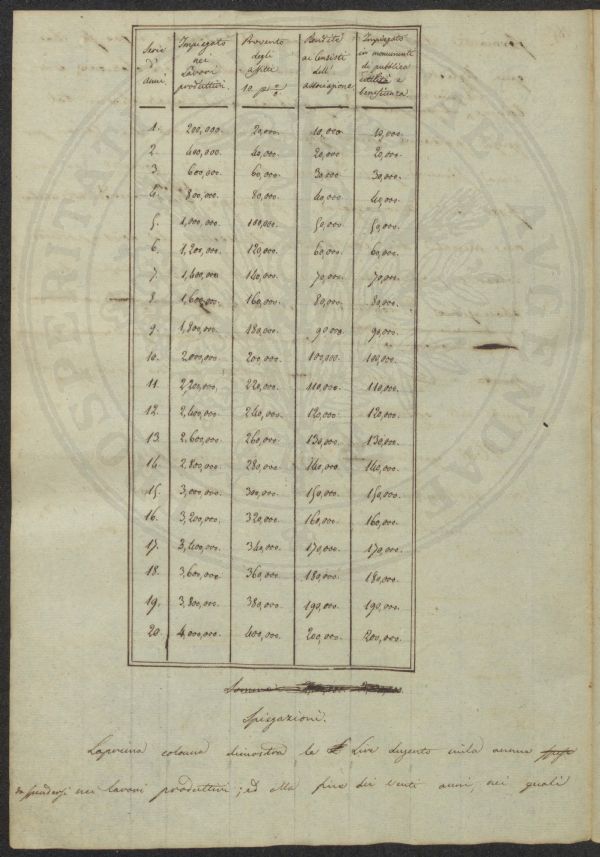 Serie d'anni. | Impiegato nei Lavori produttivi. | Provento degli affitti 10. p% | Rendite ai Censisti dell' associazione | Impiegato in monumenti di pubblica utilità e beneficenza.
1. 200,000. 20,000. 10,000. 10,000.
2. 400,000. 40,000. 20,000 20,000.
3. 600,000. 60,000. 30,000 30,000.
4. 800,000. 80,000. 40,000 40,000.
5. 1,000,000. 100,000. 50,000. 50,000.
6. 1,200,000. 120,000. 60,000. 60,000.
7. 1,400,000 140,000. 70,000. 70,000.
8. 1,600,000. 160,000. 80,000. 80,000.
9. 1,800,000. 180,000. 90,000. 90,000.
10. 2,000,000. 200,000. 100,000. 100,000.
11. 2,200,000. 220,000. 110,000. 110,000.
12. 2,400,000. 240,000. 120,000 120,000.
13. 2,600,000. 260,000. 130,000. 130,000.
14. 2,800,000. 280,000. 140,000. 140,000.
15. 3,000,000. 300,000. 150,000. 150,000.
16. 3,200,000. 320,000. 160,000. 160,000.
17. 3,400,000. 340,000. 170,000. 170,000.
18. 3,600,000. 360,000. 180,000. 180,000.
19. 3,800,000. 380,000. 190,000. 190,000.
20. 4,000,000. 400,000. 200,000. 200,000.
Somma
Spiegazioni.
La prima colonna dimostra le Lire dugento mila annue
da spendersi nei lavori produttivi; ed alla fine dei venti anni, nei quali